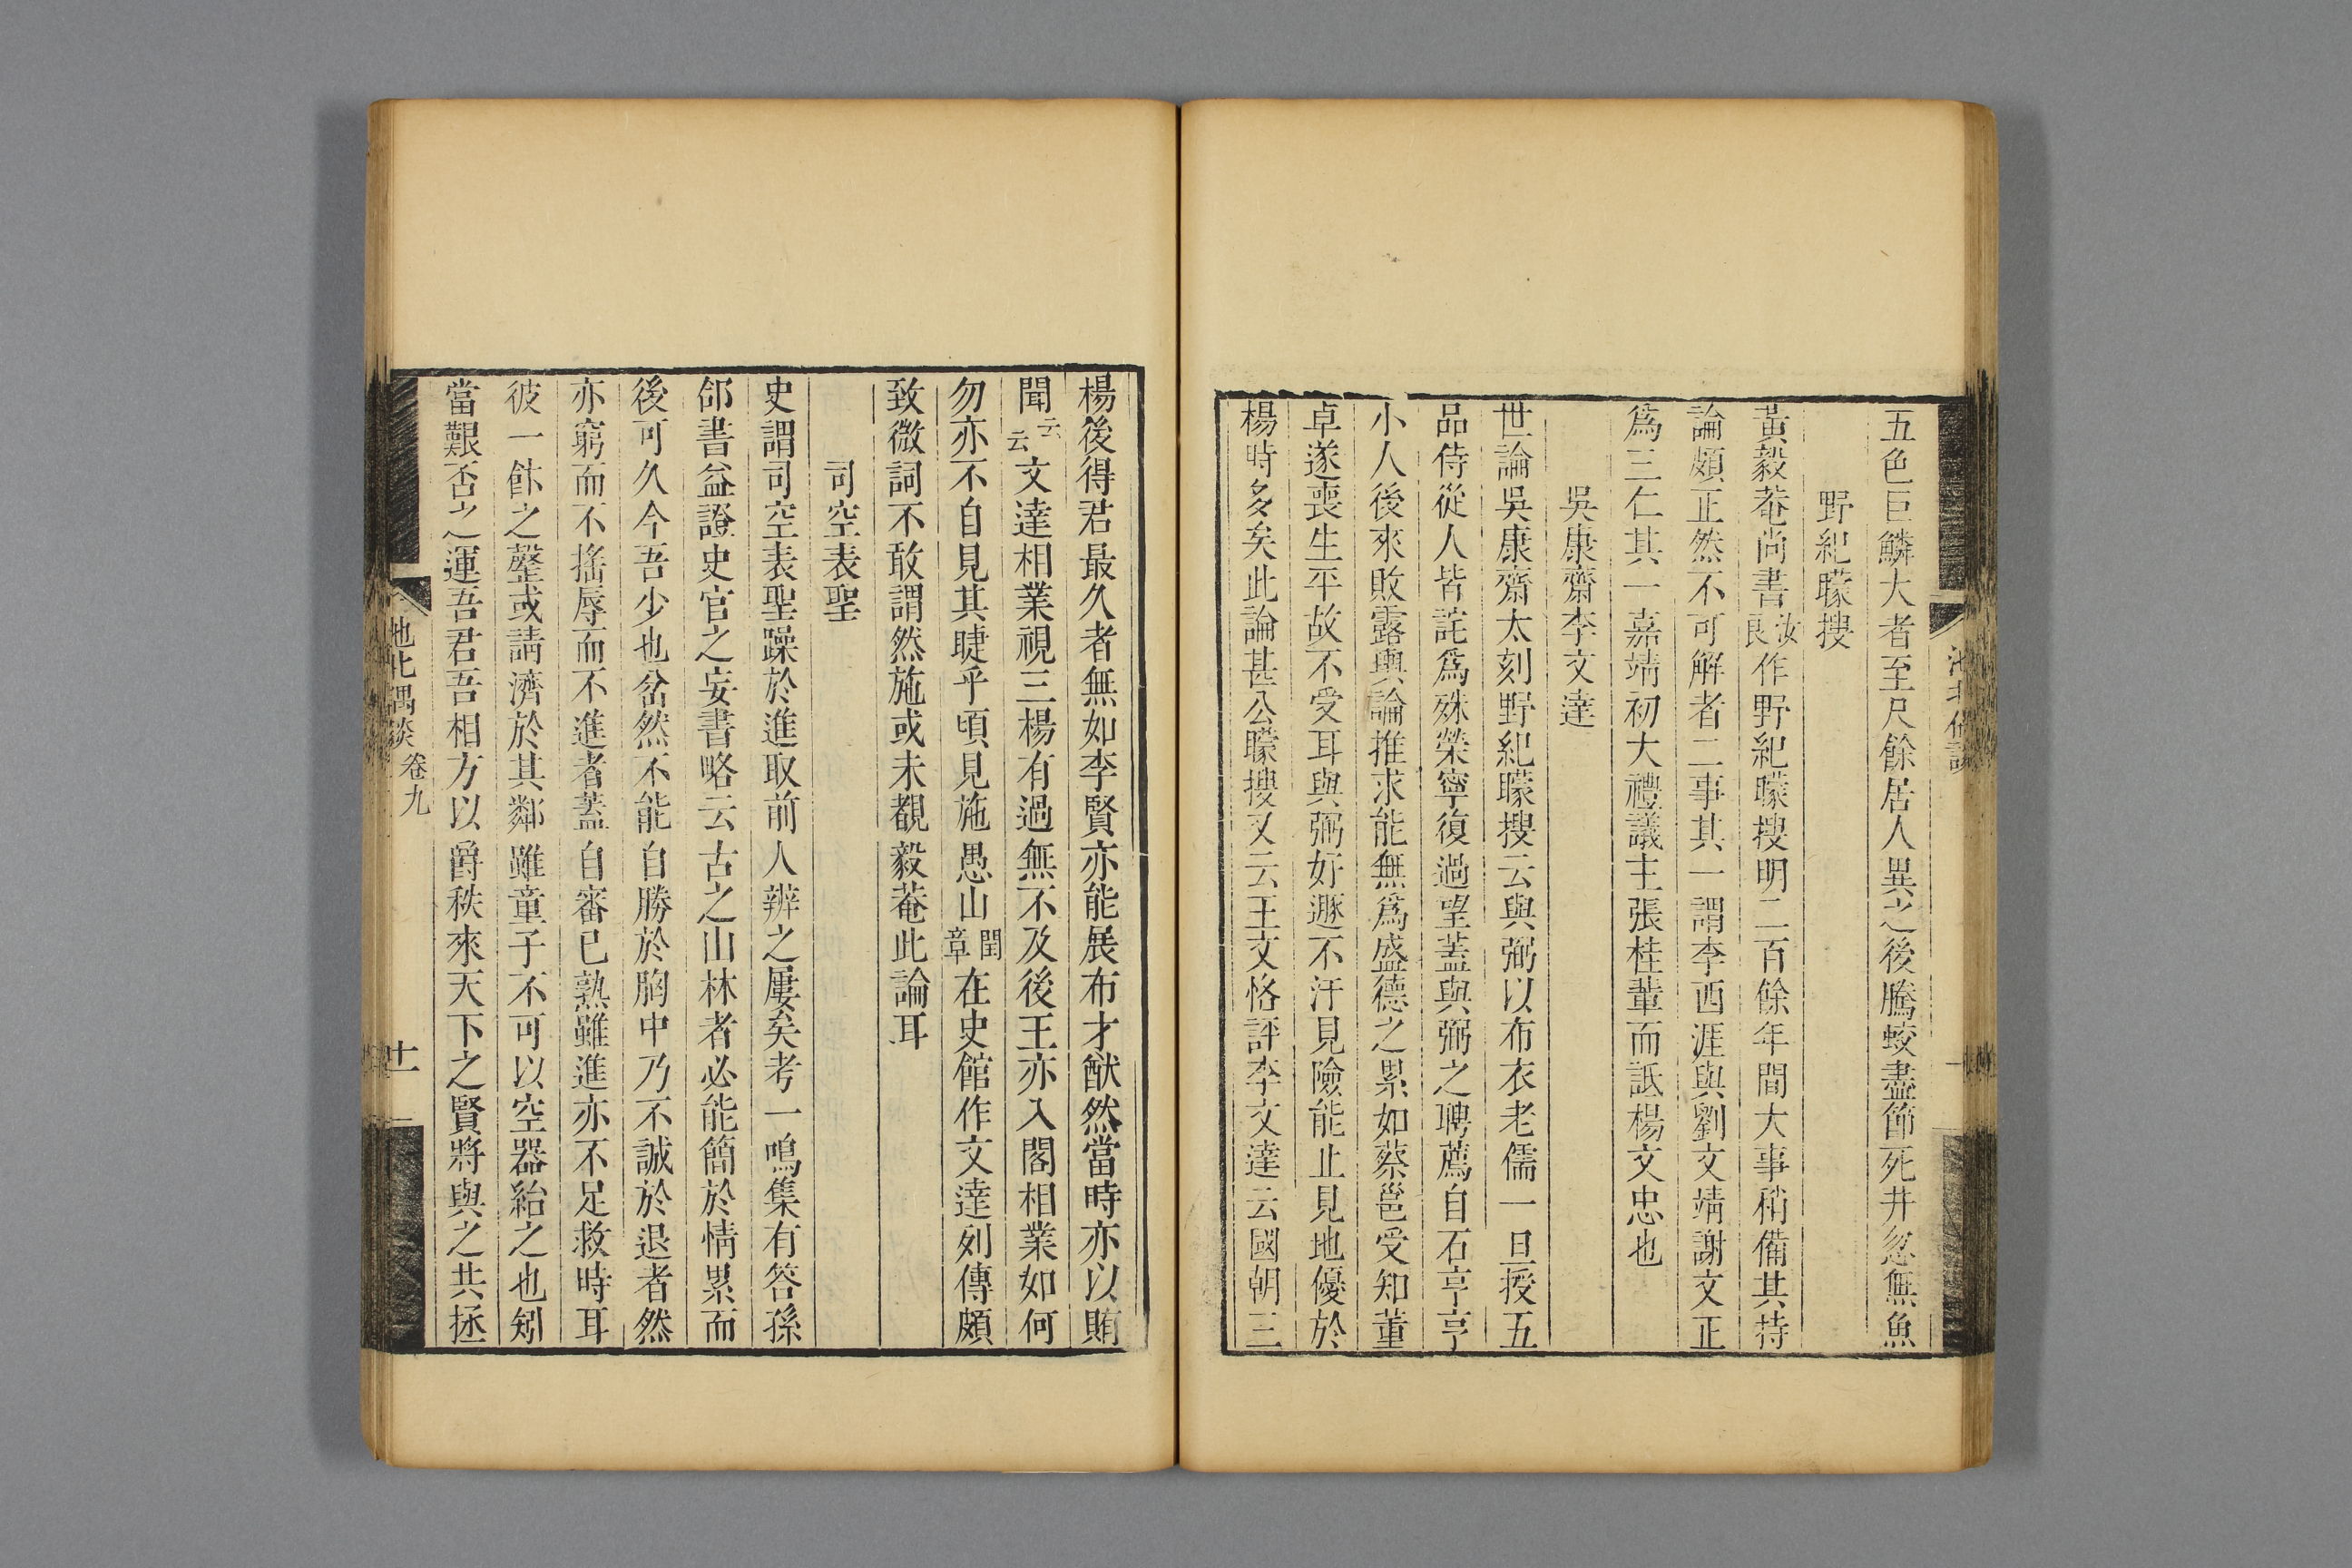 五色巨鱗大者至尺餘居人異之後騰蛟盡節死井忽無魚
野紀矇搜
黃毅菴尚書汝良作野紀矇搜明二百餘年間大事稍備其持
論頗正然不可解者二事其一謂李西涯與劉文靖謝文正
爲三仁其一嘉靖初大禮議主張桂輩而詆楊文忠也
吳康齋李文達
世論吳康齋太刻野紀矇搜云與弼以布衣老儒一旦授五
品侍從人皆詫爲殊榮寧復過望蓋與弼之聘薦自石亨亨
小人後來敗露輿論推求能無爲盛德之累如蔡邕受知董
卓遂喪生平故不受耳與弼好遯不汙見險能止見地優於
楊時多矣此論甚公矇搜又云王文恪評李文達云國朝三
楊後得君最久者無如李賢亦能展布才猷然當時亦以賄
聞云云文達相業視三楊有過無不及後王亦入閣相業如何
勿亦不自見其睫乎頃見施愚山閏章在史館作文達列傳頗
致微詞不敢謂然施或未覩毅菴此論耳
司空表聖
史謂司空表聖躁於進取前人辨之屢矣考一鳴集有答孫
郃書益證史官之妄書略云古之山林者必能簡於情累而
後可久今吾少也忿然不能自勝於胸中乃不誠於退者然
亦窮而不搖辱而不進者蓋自審已熟雖進亦不足救時耳
彼一飰之罄或請濟於其鄰雖童子不可以空器紿之也矧
當艱否之運吾君吾相方以爵秩來天下之賢將與之共拯
池北偶談
卷九
十一